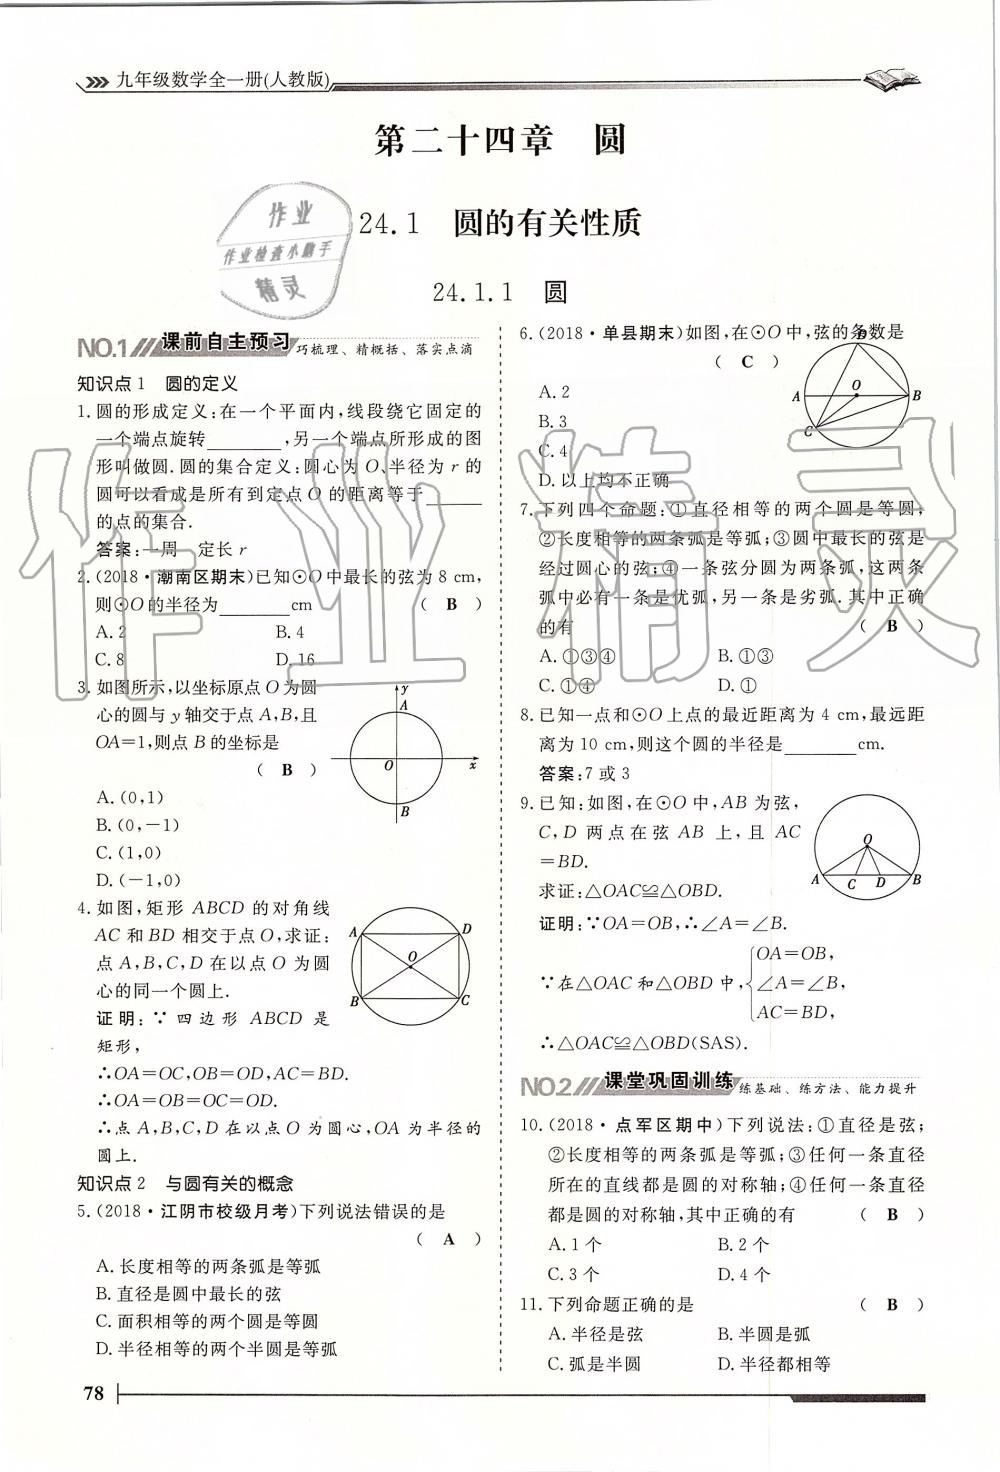 九年级数学全一册(人教版)
第二十四章 圆
24.1 圆的有关性质
24.1.1 圆
作业
作业检查小助手
精灵
NO.1 课前自主预习 巧梳理、精概括、落实点滴
知识点1 圆的定义
1.圆的形成定义:在一个平面内,线段绕它固定的
一个端点旋转________,另一个端点所形成的图
形叫做圆.圆的集合定义:圆心为O、半径为r的
圆可以看成是所有到定点O的距离等于______
的点的集合.
答案:一周 定长r
2.(2018·潮南区期末)已知⊙O中最长的弦为8 cm,
则⊙O的半径为________cm ( B )
A.2 B.4
C.8 D.16
3.如图所示,以坐标原点O为圆
心的圆与y轴交于点A,B,且
OA=1,则点B的坐标是
( B )
A.(0,1)
B.(0,-1)
C.(1,0)
D.(-1,0)
y
A
O
x
B
4.如图,矩形ABCD的对角线
AC和BD相交于点O,求证:
点A,B,C,D在以点O为圆
心的同一个圆上.
证明:∵四边形ABCD是
矩形,
∴OA=OC,OB=OD,AC=BD.
∴OA=OB=OC=OD.
∴点A,B,C,D在以点O为圆心,OA为半径的
圆上.
A D
O
B C
知识点2 与圆有关的概念
5.(2018·江阴市校级月考)下列说法错误的是
( A )
A.长度相等的两条弧是等弧
B.直径是圆中最长的弦
C.面积相等的两个圆是等圆
D.半径相等的两个半圆是等弧
6.(2018·单县期末)如图,在⊙O中,弦的条数是
( C )
A.2
B.3
C.4
D.以上均不正确
D
O
A B
C
7.下列四个命题:①直径相等的两个圆是等圆;
②长度相等的两条弧是等弧;③圆中最长的弦是
经过圆心的弦;④一条弦分圆为两条弧,这两条
弧中必有一条是优弧,另一条是劣弧.其中正确
的有 ( B )
A.①③④ B.①③
C.①④ D.①
8.已知一点和⊙O上点的最近距离为4 cm,最远距
离为10 cm,则这个圆的半径是________cm.
答案:7或3
9.已知:如图,在⊙O中,AB为弦,
C,D两点在弦AB上,且AC
=BD.
求证:△OAC≌△OBD.
证明:∵OA=OB,∴∠A=∠B.
OA=OB,
∵在△OAC和△OBD中, ∠A=∠B,
AC=BD,
∴△OAC≌△OBD(SAS).
O
A C D B
NO.2 课堂巩固训练 练基础、练方法、能力提升
10.(2018·点军区期中)下列说法:①直径是弦;
②长度相等的两条弧是等弧;③任何一条直径
所在的直线都是圆的对称轴;④任何一条直径
都是圆的对称轴,其中正确的有 ( B )
A.1个 B.2个
C.3个 D.4个
11.下列命题正确的是 ( B )
A.半径是弦 B.半圆是弧
C.弧是半圆 D.半径都相等
78
作业精灵